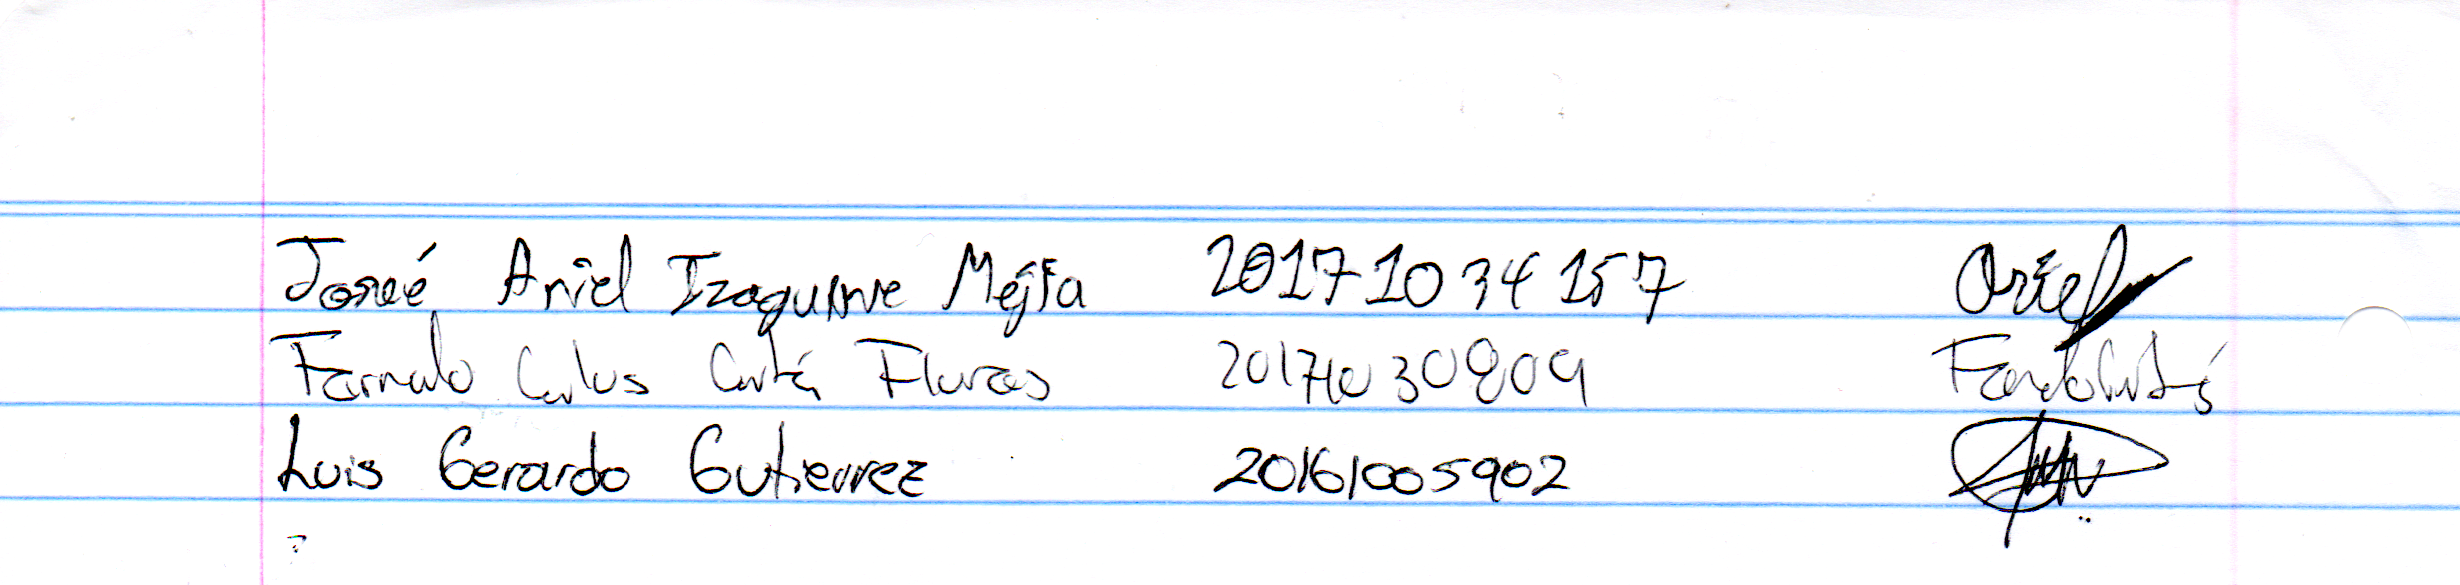 José Ariel Izaguirre Mejía 20171034157 Ariel
Fernando Carlos Flores 20171030809
Luis Gerardo Gutierrez 20161005902